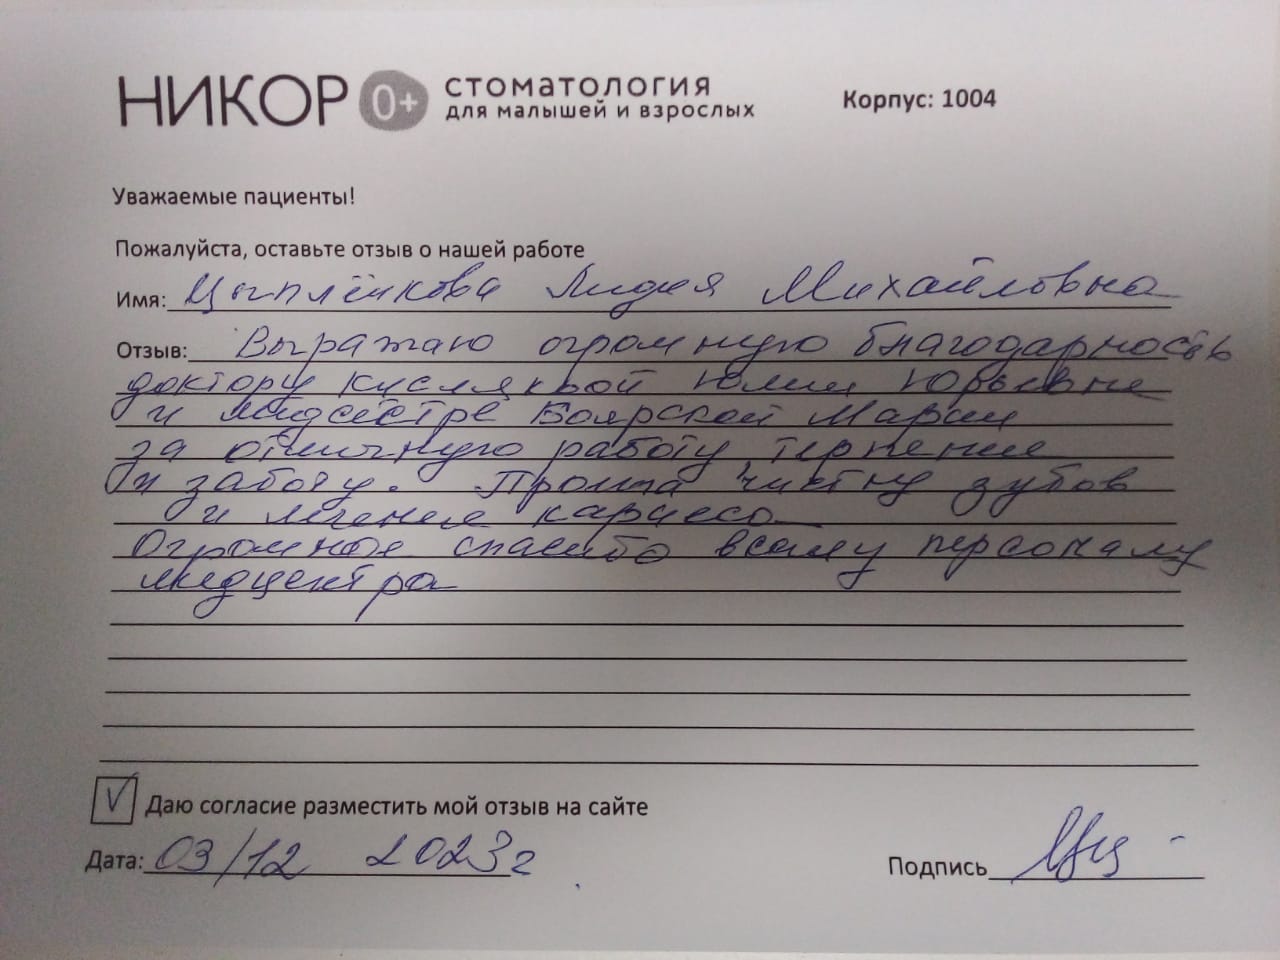 НИКОР 0+ СТОМАТОЛОГИЯ
для малышей и взрослых
Корпус: 1004
Уважаемые пациенты!
Пожалуйста, оставьте отзыв о нашей работе
Имя: Цыплёнкова Лидия Михайловна
Отзыв: Выражаю огромную благодарность
доктору Кисляковой Юлии Юрьевне
и медсестре Боярской Марии
за отличную работу терпение
и заботу. Прошла чистку зубов
и лечение кариеса
Огромное спасибо всему персоналу
медцентра
V Даю согласие разместить мой отзыв на сайте
Дата: 03/12 2023г
Подпись